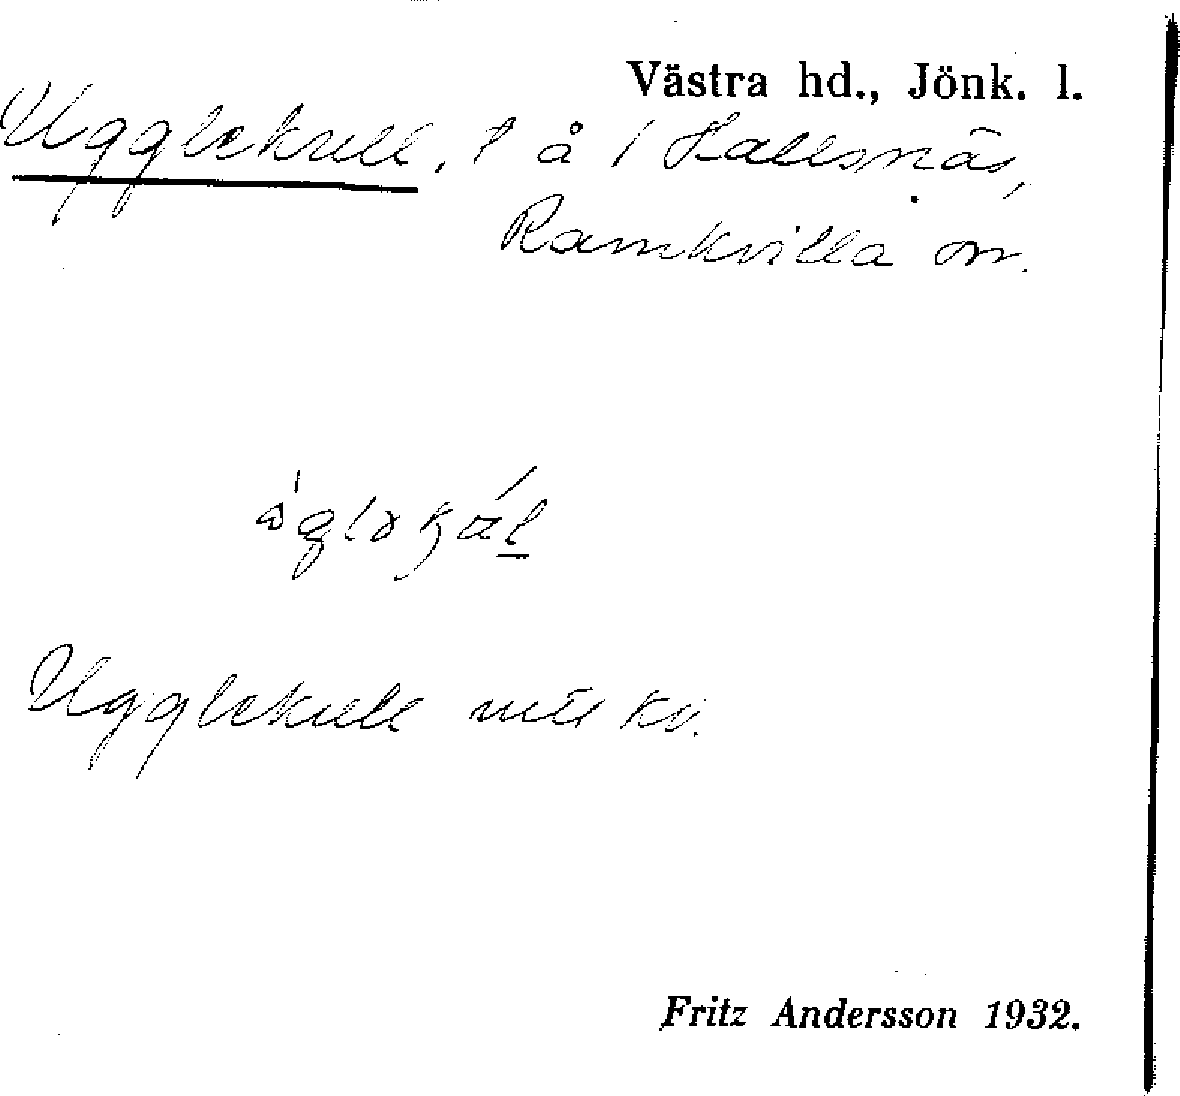 Västra hd., Jönk. l.
Ugglekull, l å / Hallsnäs,
Ramkvilla sn.
Ugglekull
Fritz Andersson 1932.